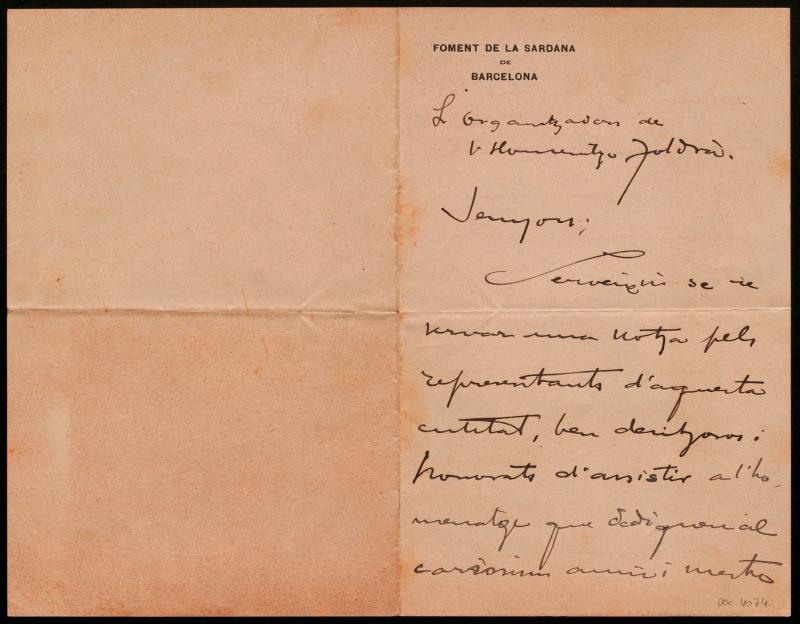 FOMENT DE LA SARDANA
DE
BARCELONA
Organitzadors de
l'Homenatge Toldrà.
Senyors;
Serveixin se re
servar una llotja pels
representants d'aquesta
entitat, ben desitjosos i
honorats d'assistir a l'ho-
menatge que dediquen al
caríssim amic i mestre
Doc 4074